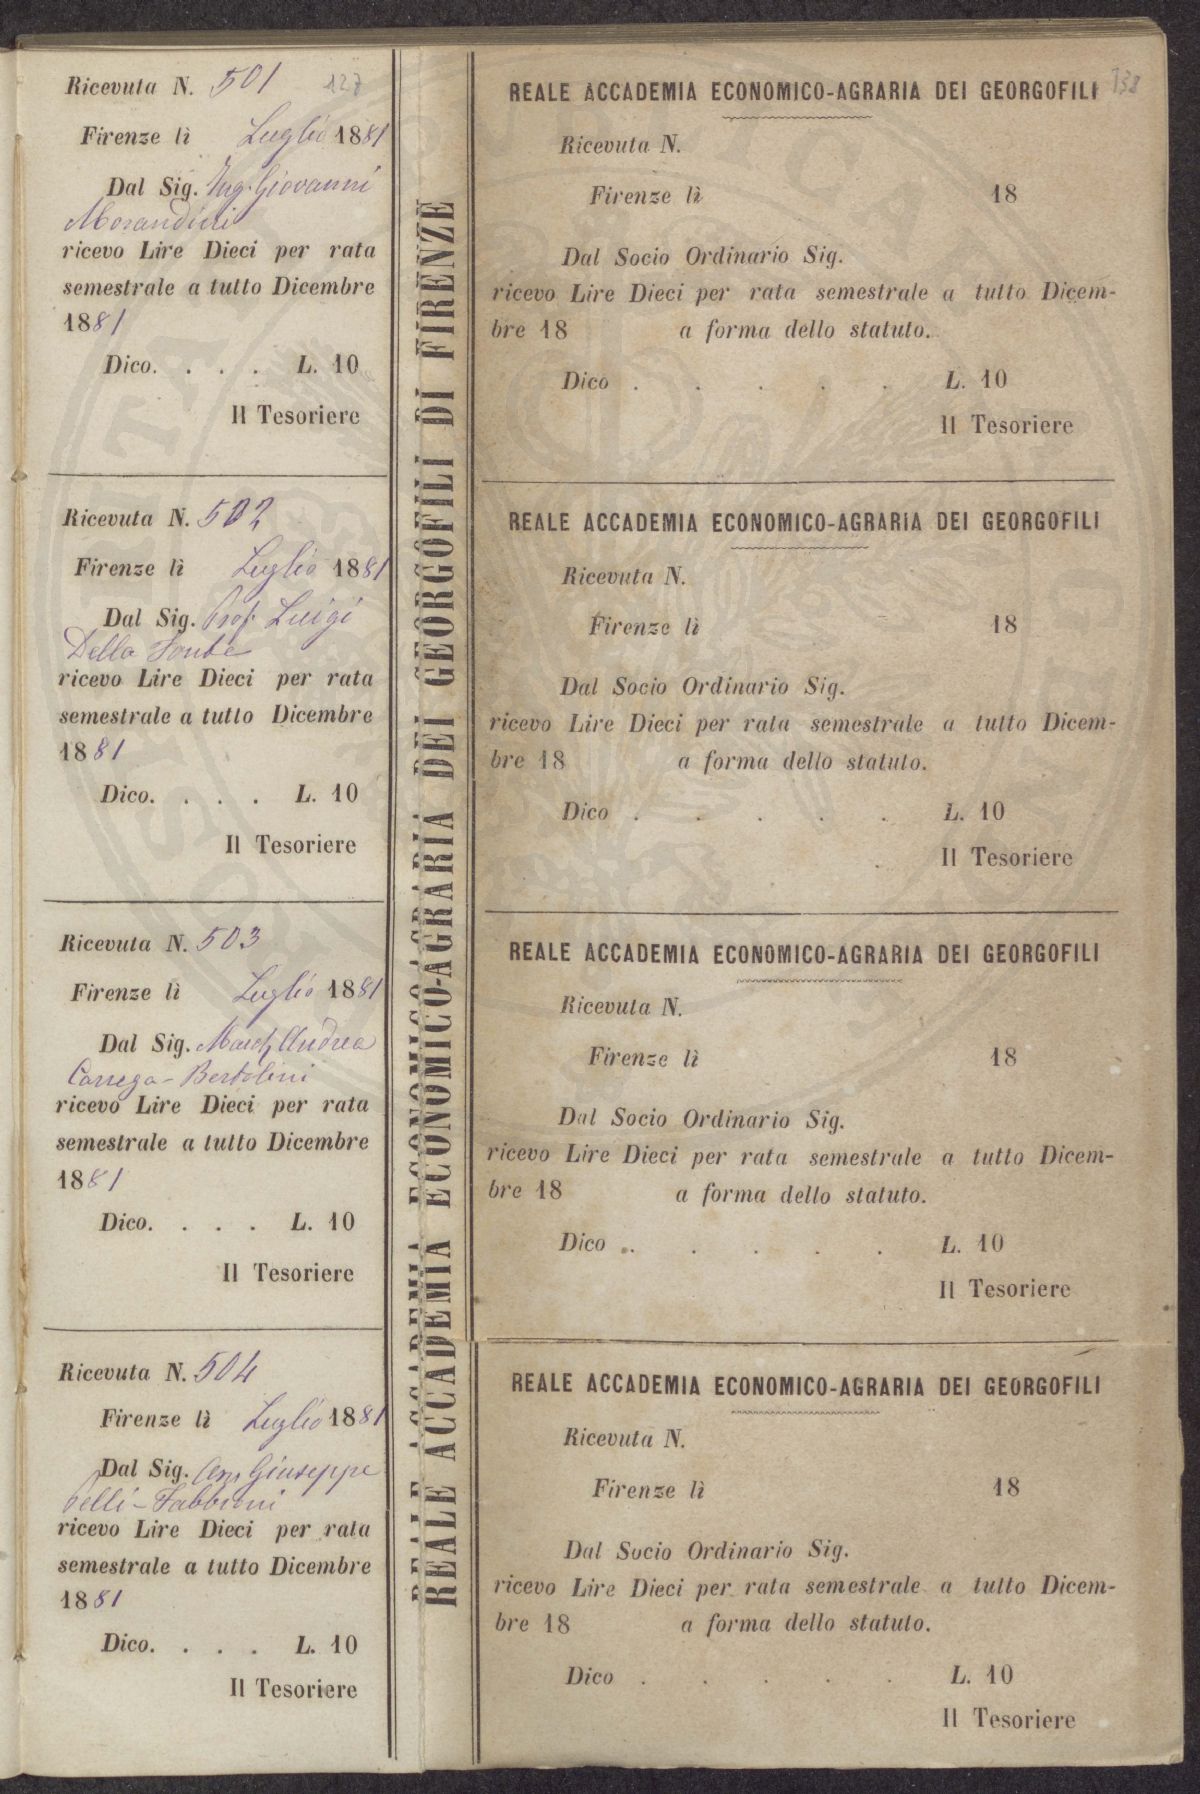 Ricevuta N. 501 127
Firenze lì Luglio 1881
Dal Sig. Ing. Giovanni
Morandini
ricevo Lire Dieci per rata
semestrale a tutto Dicembre
1881
Dico. . . . L. 10
Il Tesoriere
Ricevuta N. 502
Firenze lì Luglio 1881
Dal Sig. Prof. Luigi
Della Fonte
ricevo Lire Dieci per rata
semestrale a tutto Dicembre
1881
Dico. . . . L. 10
Il Tesoriere
Ricevuta N. 503
Firenze lì Luglio 1881
Dal Sig. March. Andrea
Carrega-Bertolini
ricevo Lire Dieci per rata
semestrale a tutto Dicembre
1881
Dico. . . . L. 10
Il Tesoriere
Ricevuta N. 504
Firenze lì Luglio 1881
Dal Sig. Giuseppe
Pelli-Fabbroni
ricevo Lire Dieci per rata
semestrale a tutto Dicembre
1881
Dico. . . . L. 10
Il Tesoriere
REALE ACCADEMIA ECONOMICO-AGRARIA DEI GEORGOFILI DI FIRENZE
138
REALE ACCADEMIA ECONOMICO-AGRARIA DEI GEORGOFILI
Ricevuta N.
Firenze lì 18
Dal Socio Ordinario Sig.
ricevo Lire Dieci per rata semestrale a tutto Dicem-
bre 18 a forma dello statuto.
Dico . . . . . L. 10
Il Tesoriere
REALE ACCADEMIA ECONOMICO-AGRARIA DEI GEORGOFILI
Ricevuta N.
Firenze lì 18
Dal Socio Ordinario Sig.
ricevo Lire Dieci per rata semestrale a tutto Dicem-
bre 18 a forma dello statuto.
Dico . . . . . L. 10
Il Tesoriere
REALE ACCADEMIA ECONOMICO-AGRARIA DEI GEORGOFILI
Ricevuta N.
Firenze lì 18
Dal Socio Ordinario Sig.
ricevo Lire Dieci per rata semestrale a tutto Dicem-
bre 18 a forma dello statuto.
Dico . . . . . L. 10
Il Tesoriere
REALE ACCADEMIA ECONOMICO-AGRARIA DEI GEORGOFILI
Ricevuta N.
Firenze lì 18
Dal Socio Ordinario Sig.
ricevo Lire Dieci per rata semestrale a tutto Dicem-
bre 18 a forma dello statuto.
Dico . . . . . L. 10
Il Tesoriere